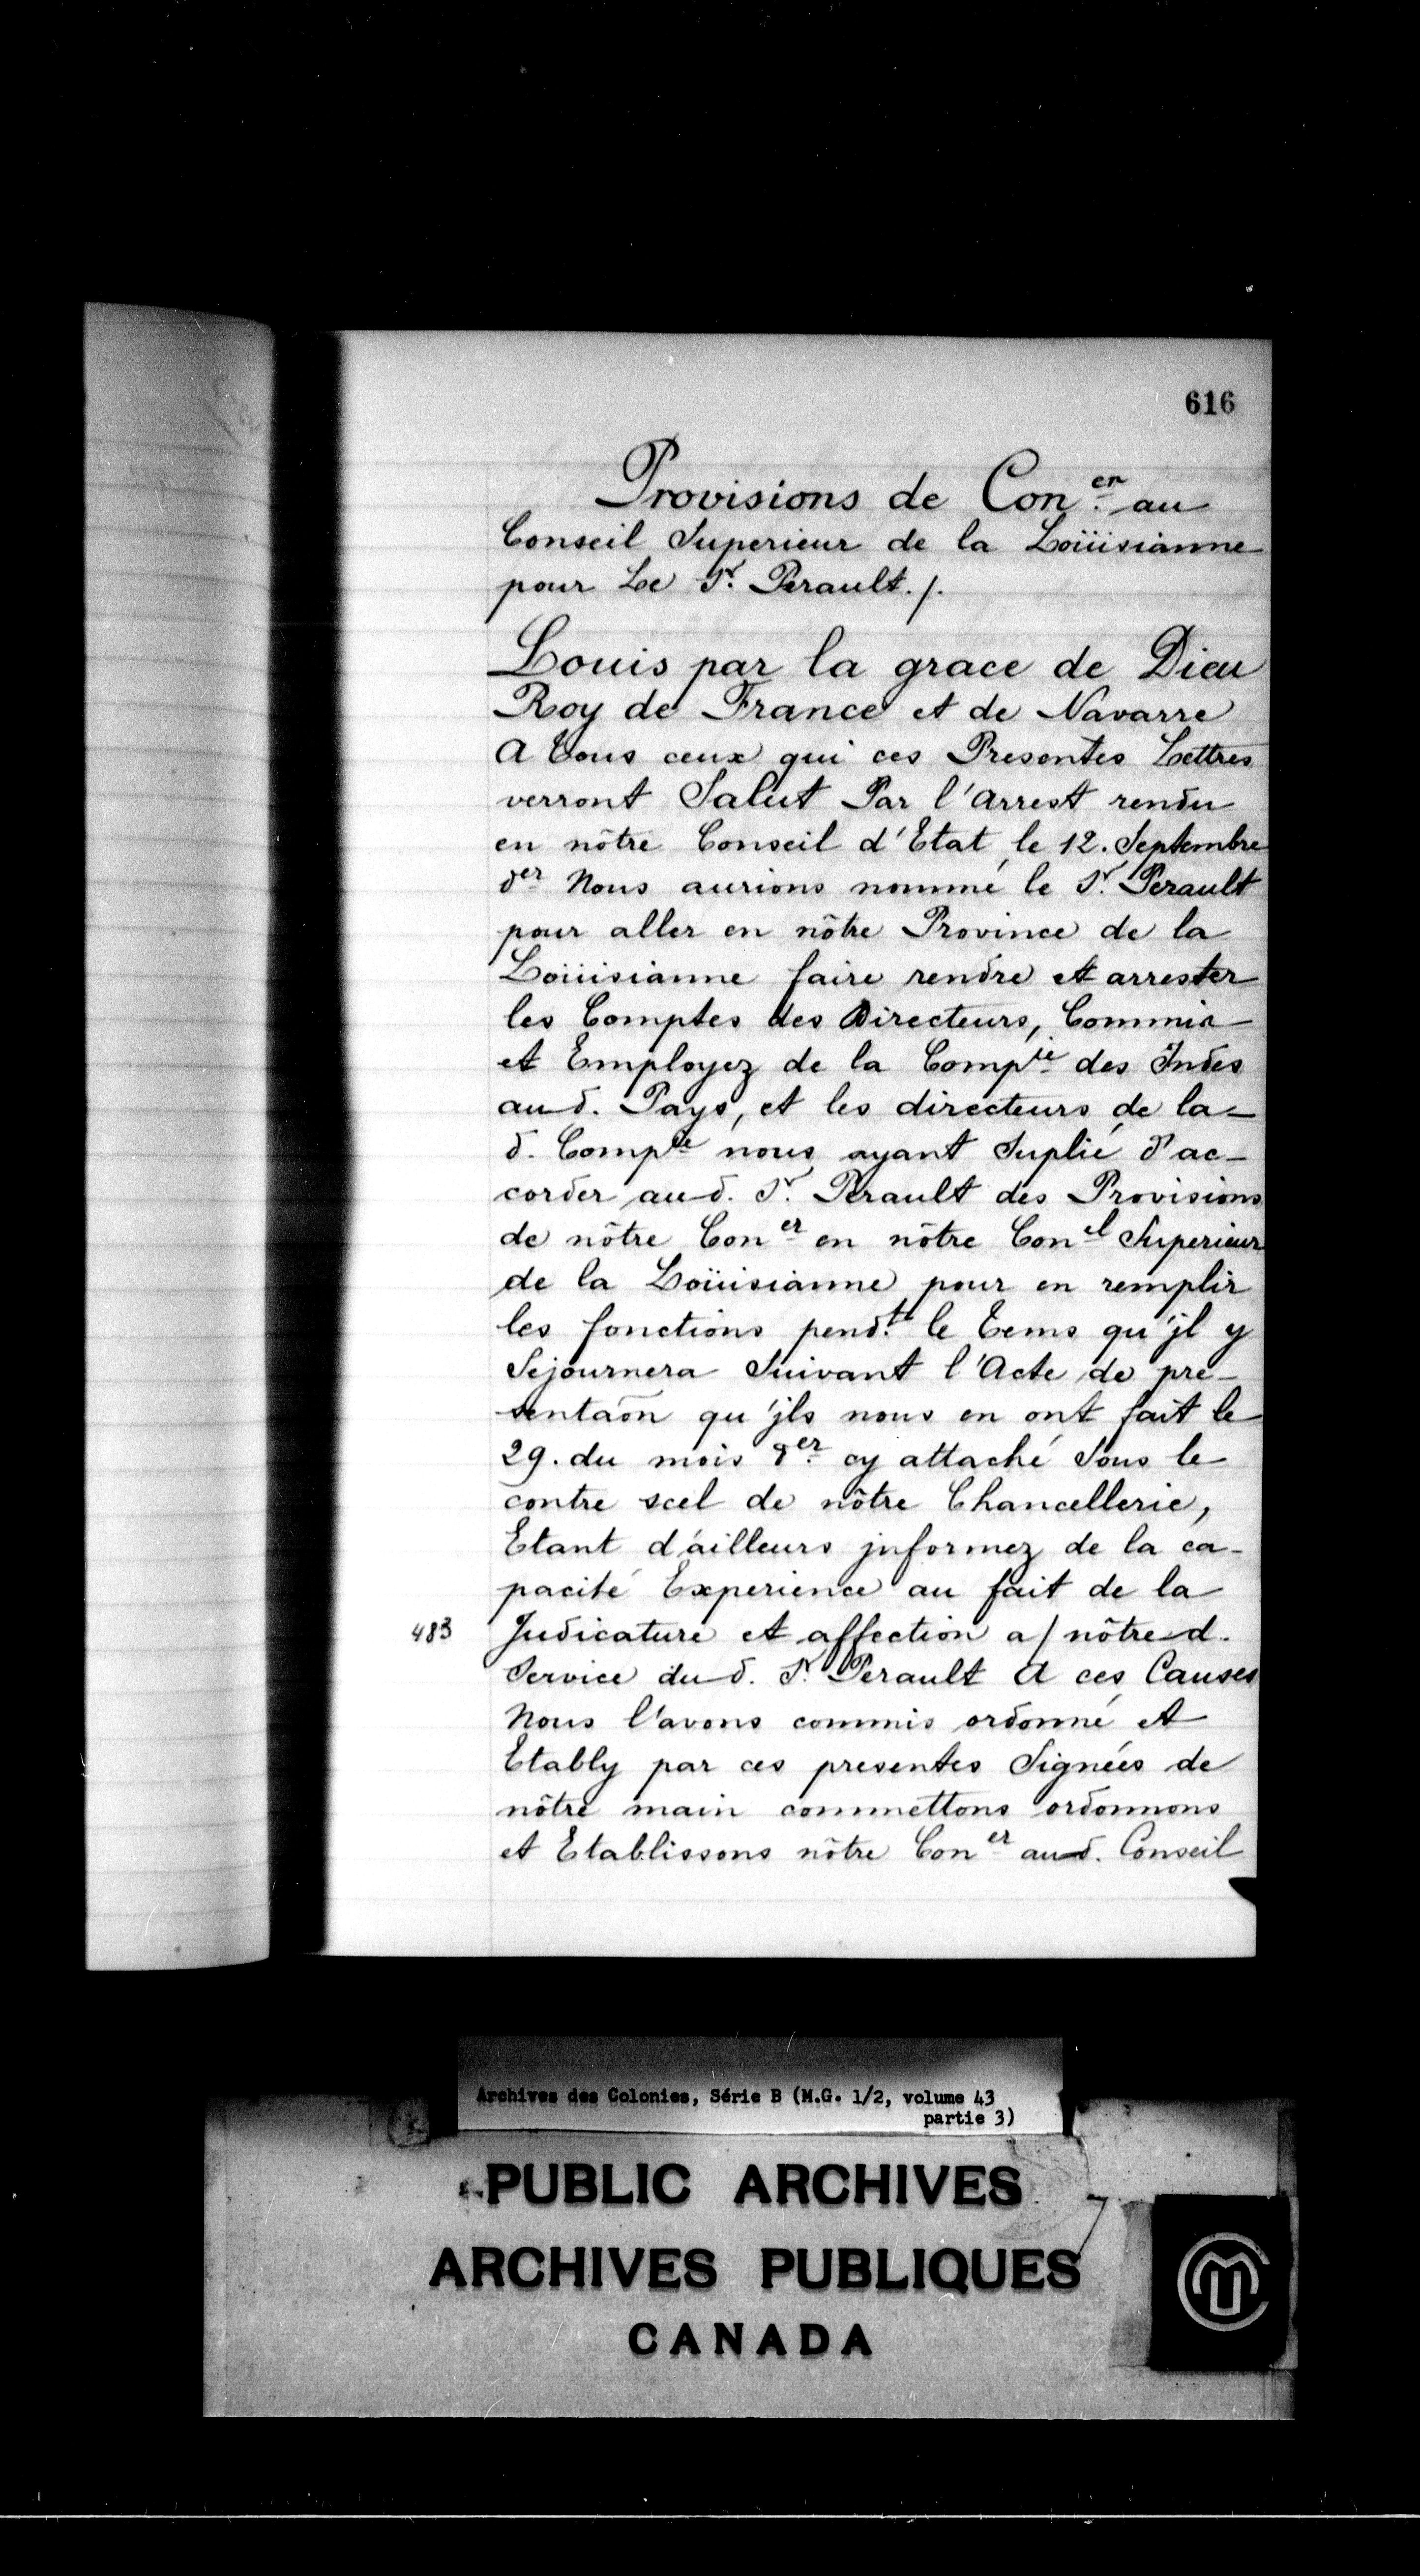 616
Provisions de Con.er au
Conseil Superieur de la Loüisianne
pour Le Sr. Perault./.
Louis par la grace de Dieu
Roy de France et de Navarre
A tous ceux qui ces Presentes Lettres
verront Salut Par l'arrest rendu
en nôtre Conseil d'Etat le 12. Septembre
der Nous aurions nommé le Sr. Perault
pour aller en nôtre Province de la
Loüisianne faire rendre et arrester
les Comptes des Directeurs, Commis
et Employez de la Compie des Indes
aud. Pays, et les directeurs de la
d. Compie nous ayant Suplié d'ac-
corder aud. Sr. Perault des Provisions
de nôtre Coner en nôtre Conel Superieur
de la Loüisianne pour en remplir
les fonctions pend.t le Tems qu'jl y
Sejournera Suivant l'Acte de pre-
sentaõn qu'jls nous en ont fait le
29. du mois der cy attaché Sous le
contre scel de nôtre Chancellerie,
Etant d'ailleurs jnformez de la ca-
pacité Experience au fait de la
483 Judicature et affection a/nôtred.
Service dud. Sr. Perault A ces Causes
Nous l'avons commis ordonné et
Etably par ces presentes Signées de
nôtre main commettons ordonnons
et Etablissons nôtre Coner aud. Conseil
Archives des Colonies, Série B (M.G. 1/2, volume 43
partie 3)
PUBLIC ARCHIVES
ARCHIVES PUBLIQUES
CANADA